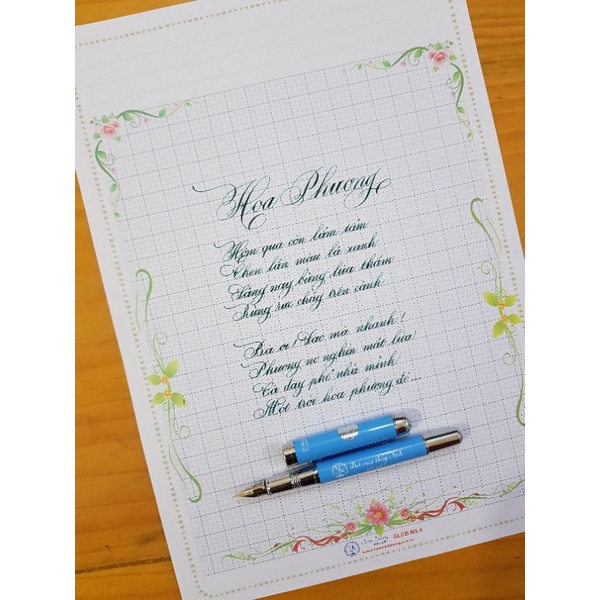 Hoa Phượng
Hôm qua còn lấm tấm
Chen lẫn màu lá xanh
Sáng nay bừng lửa thẫm
Rừng rực cháy trên cành
Bà ơi! Sao mà nhanh!
Phượng nở nghìn mắt lửa
Cả dãy phố nhà mình
Một trời hoa phượng đỏ...
Ánh
GLCD No.4